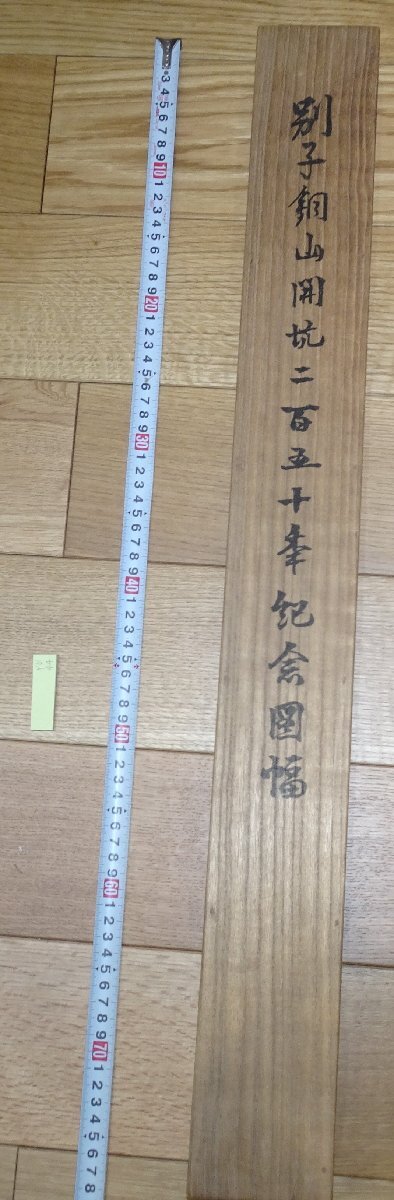 別子銅山開坑二百五十年紀念図幅
3 4 5 6 7 8 9 10 1 2 3 4 5 6 7 8 9 20 1 2 3 4 5 6 7 8 9 30 1 2 3 4 5 6 7 8 9 40 1 2 3 4 5 6 7 8 9 50 1 2 3 4 5 6 7 8 9 60 1 2 3 4 5 6 7 8 9 70 1 2 3 4 5 6 7 8